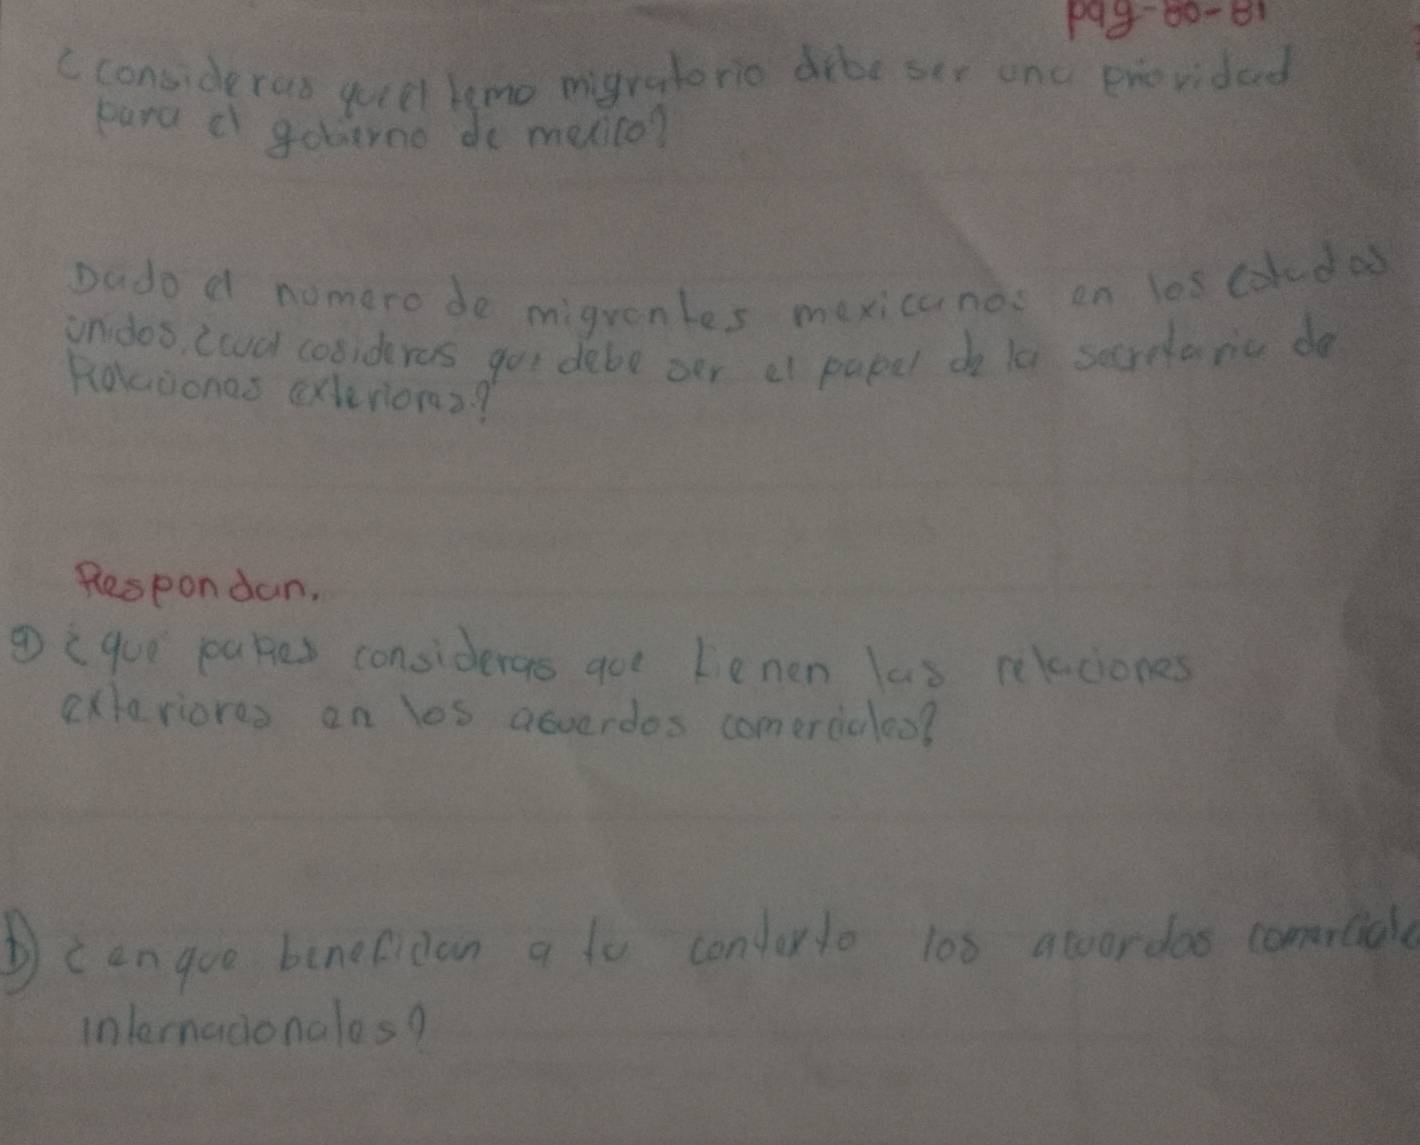 pag-80-81
¿consideras que el tema migratorio debe ser una prioridad
para el gobierno de mexico?
Dado el numero de migrantes mexicanos en los estados
unidos. ¿cual cosideras que debe ser el papel de la secretaria de
Relaciones exteriores?
Respondan.
a) ¿que papel consideras que tienen las relaciones
exteriores en los acuerdos comerciales?
b) ¿en que benefician a tu contexto los acuerdos comerciale
internacionales?